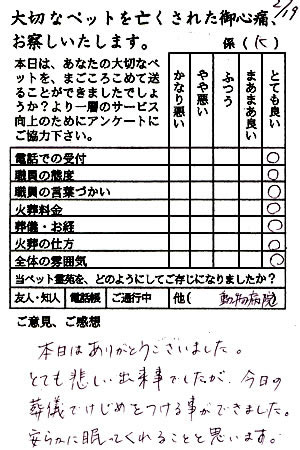 2/19
大切なペットを亡くされた御心痛、
お察しいたします。
係(K)
本日は、あなたの大切なペッ
トを、まごころこめて送
ることができましたでし
ょうか?より一層のサービス
向上のためにアンケートに
ご協力下さい。
かなり悪い
やや悪い
ふつう
まあまあ良い
とても良い
電話での受付 ○
職員の態度 ○
職員の言葉づかい ○
火葬料金 ○
葬儀・お経 ○
火葬の仕方 ○
全体の雰囲気 ○
当ペット霊苑を、どのようにしてご存じになりましたか?
友人・知人 電話帳 ご通行中 他( 動物病院 )
ご意見、ご感想
本日はありがとうございました。
とても悲しい出来事でしたが、今日の
葬儀でけじめをつける事ができました。
安らかに眠ってくれることと思います。